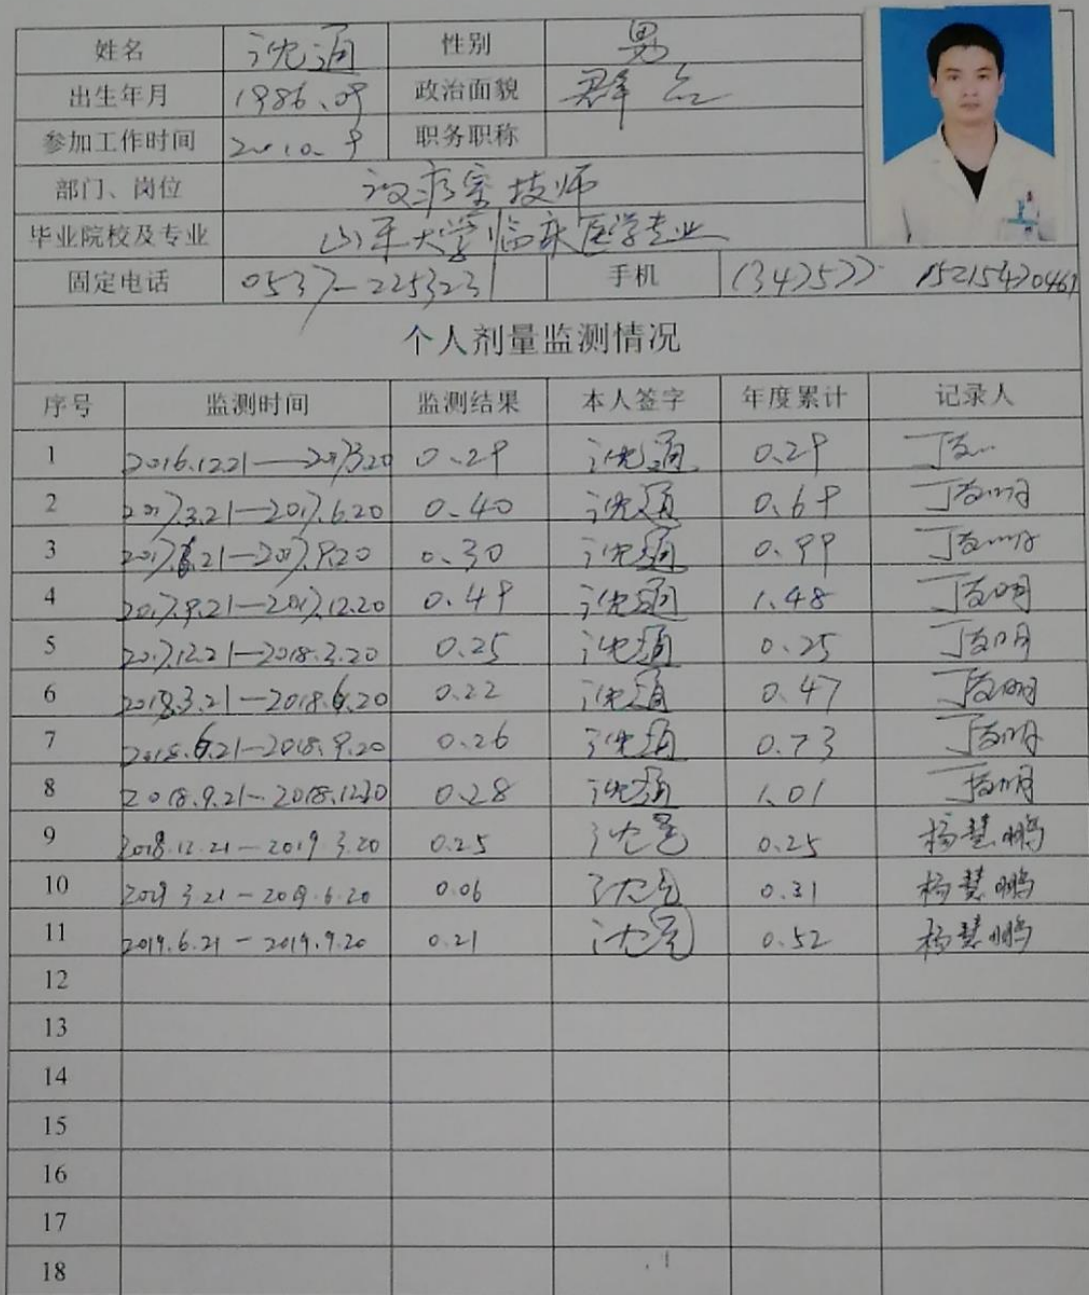 姓名 沈通 性别 男
出生年月 1986.09 政治面貌 群众
参加工作时间 2010.9 职务职称
部门、岗位 放疗室技师
毕业院校及专业 山东大学临床医学专业
固定电话 0537-2253231 手机 15215470461
个人剂量监测情况
序号 监测时间 监测结果 本人签字 年度累计 记录人
1 2016.12.21—2017.3.20 0.29 沈通 0.29
2 2017.3.21—2017.6.20 0.40 沈通 0.69
3 2017.6.21—2017.9.20 0.30 沈通 0.99
4 2017.9.21—2017.12.20 0.49 沈通 1.48
5 2017.12.21—2018.3.20 0.25 沈通 0.25
6 2018.3.21—2018.6.20 0.22 沈通 0.47
7 2018.6.21—2018.9.20 0.26 沈通 0.73
8 2018.9.21—2018.12.20 0.28 沈通 1.01
9 2018.12.21—2019.3.20 0.25 0.25 杨慧鹏
10 2019.3.21—2019.6.20 0.06 0.31 杨慧鹏
11 2019.6.21—2019.9.20 0.21 0.52 杨慧鹏
12
13
14
15
16
17
18